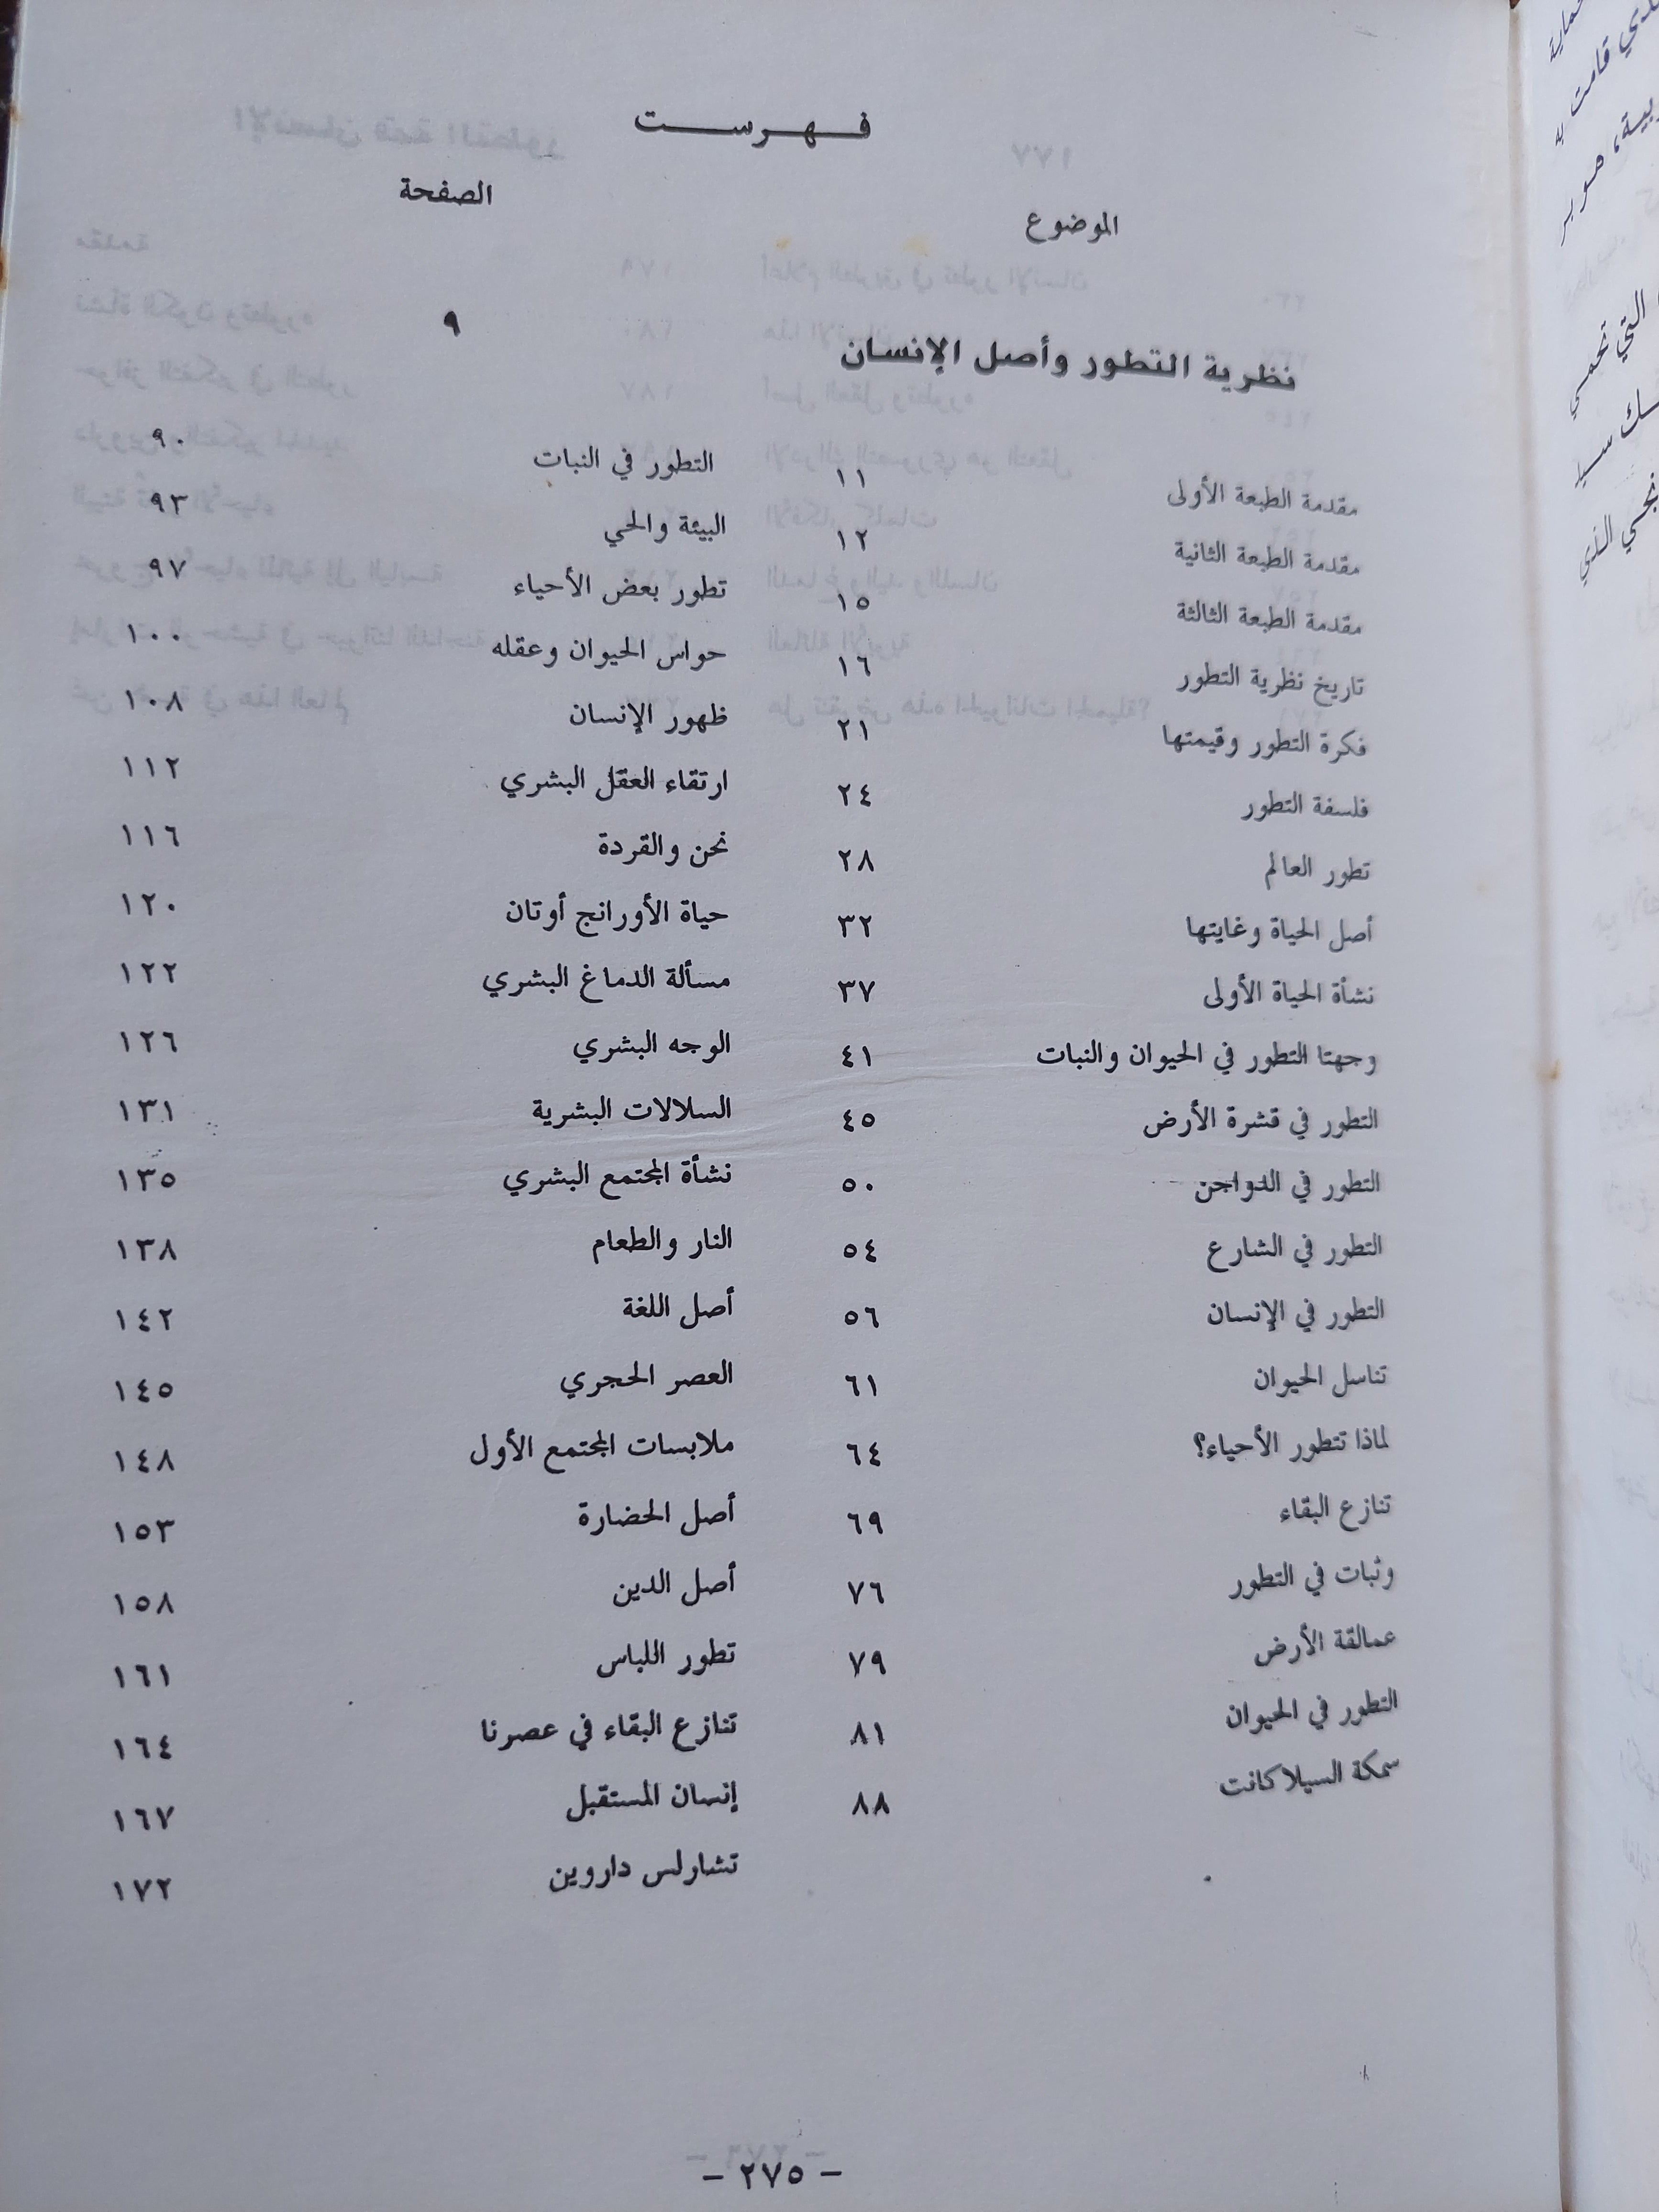 فهرست
الموضوع
الصفحة
نظرية التطور وأصل الإنسان ٩
مقدمة الطبعة الأولى ١١
مقدمة الطبعة الثانية ١٢
مقدمة الطبعة الثالثة ١٥
تاريخ نظرية التطور ١٦
فكرة التطور وقيمتها ٢١
فلسفة التطور ٢٤
تطور العالم ٢٨
أصل الحياة وغايتها ٣٢
نشأة الحياة الأولى ٣٧
وجهتا التطور في الحيوان والنبات ٤١
التطور في قشرة الأرض ٤٥
التطور في الدواجن ٥٠
التطور في الشارع ٥٤
التطور في الإنسان ٥٦
تناسل الحيوان ٦١
لماذا تتطور الأحياء؟ ٦٤
تنازع البقاء ٦٩
وثبات في التطور ٧٦
عمالقة الأرض ٧٩
التطور في الحيوان ٨١
سمكة السيلاكانت ٨٨
التطور في النبات ٩٠
البيئة والحي ٩٣
تطور بعض الأحياء ٩٧
حواس الحيوان وعقله ١٠٠
ظهور الإنسان ١٠٨
ارتقاء العقل البشري ١١٢
نحن والقردة ١١٦
حياة الأورانج أوتان ١٢٠
مسألة الدماغ البشري ١٢٢
الوجه البشري ١٢٦
السلالات البشرية ١٣١
نشأة المجتمع البشري ١٣٥
النار والطعام ١٣٨
أصل اللغة ١٤٢
العصر الحجري ١٤٥
ملابسات المجتمع الأول ١٤٨
أصل الحضارة ١٥٣
أصل الدين ١٥٨
تطور اللباس ١٦١
تنازع البقاء في عصرنا ١٦٤
إنسان المستقبل ١٦٧
تشارلس داروين ١٧٢
– ٢٧٥ –